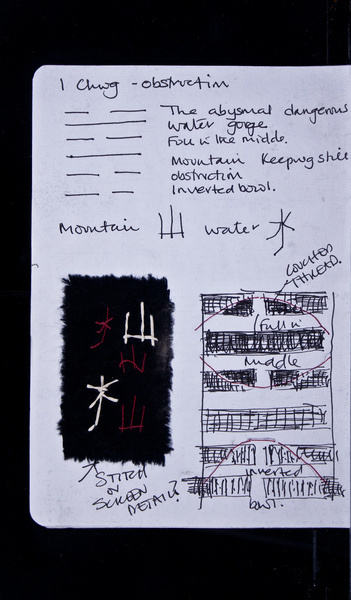 I Ching - obstruction
The abysmal dangerous
water gorge.
Full in the middle.
Mountain Keeping still
obstruction
Inverted bowl.
Mountain 山 water 水
COUCHED
THREAD.
水 山
山
水 山
Full in
middle
inverted
bowl.
STITCH
OR
SCREEN
DETAIL?